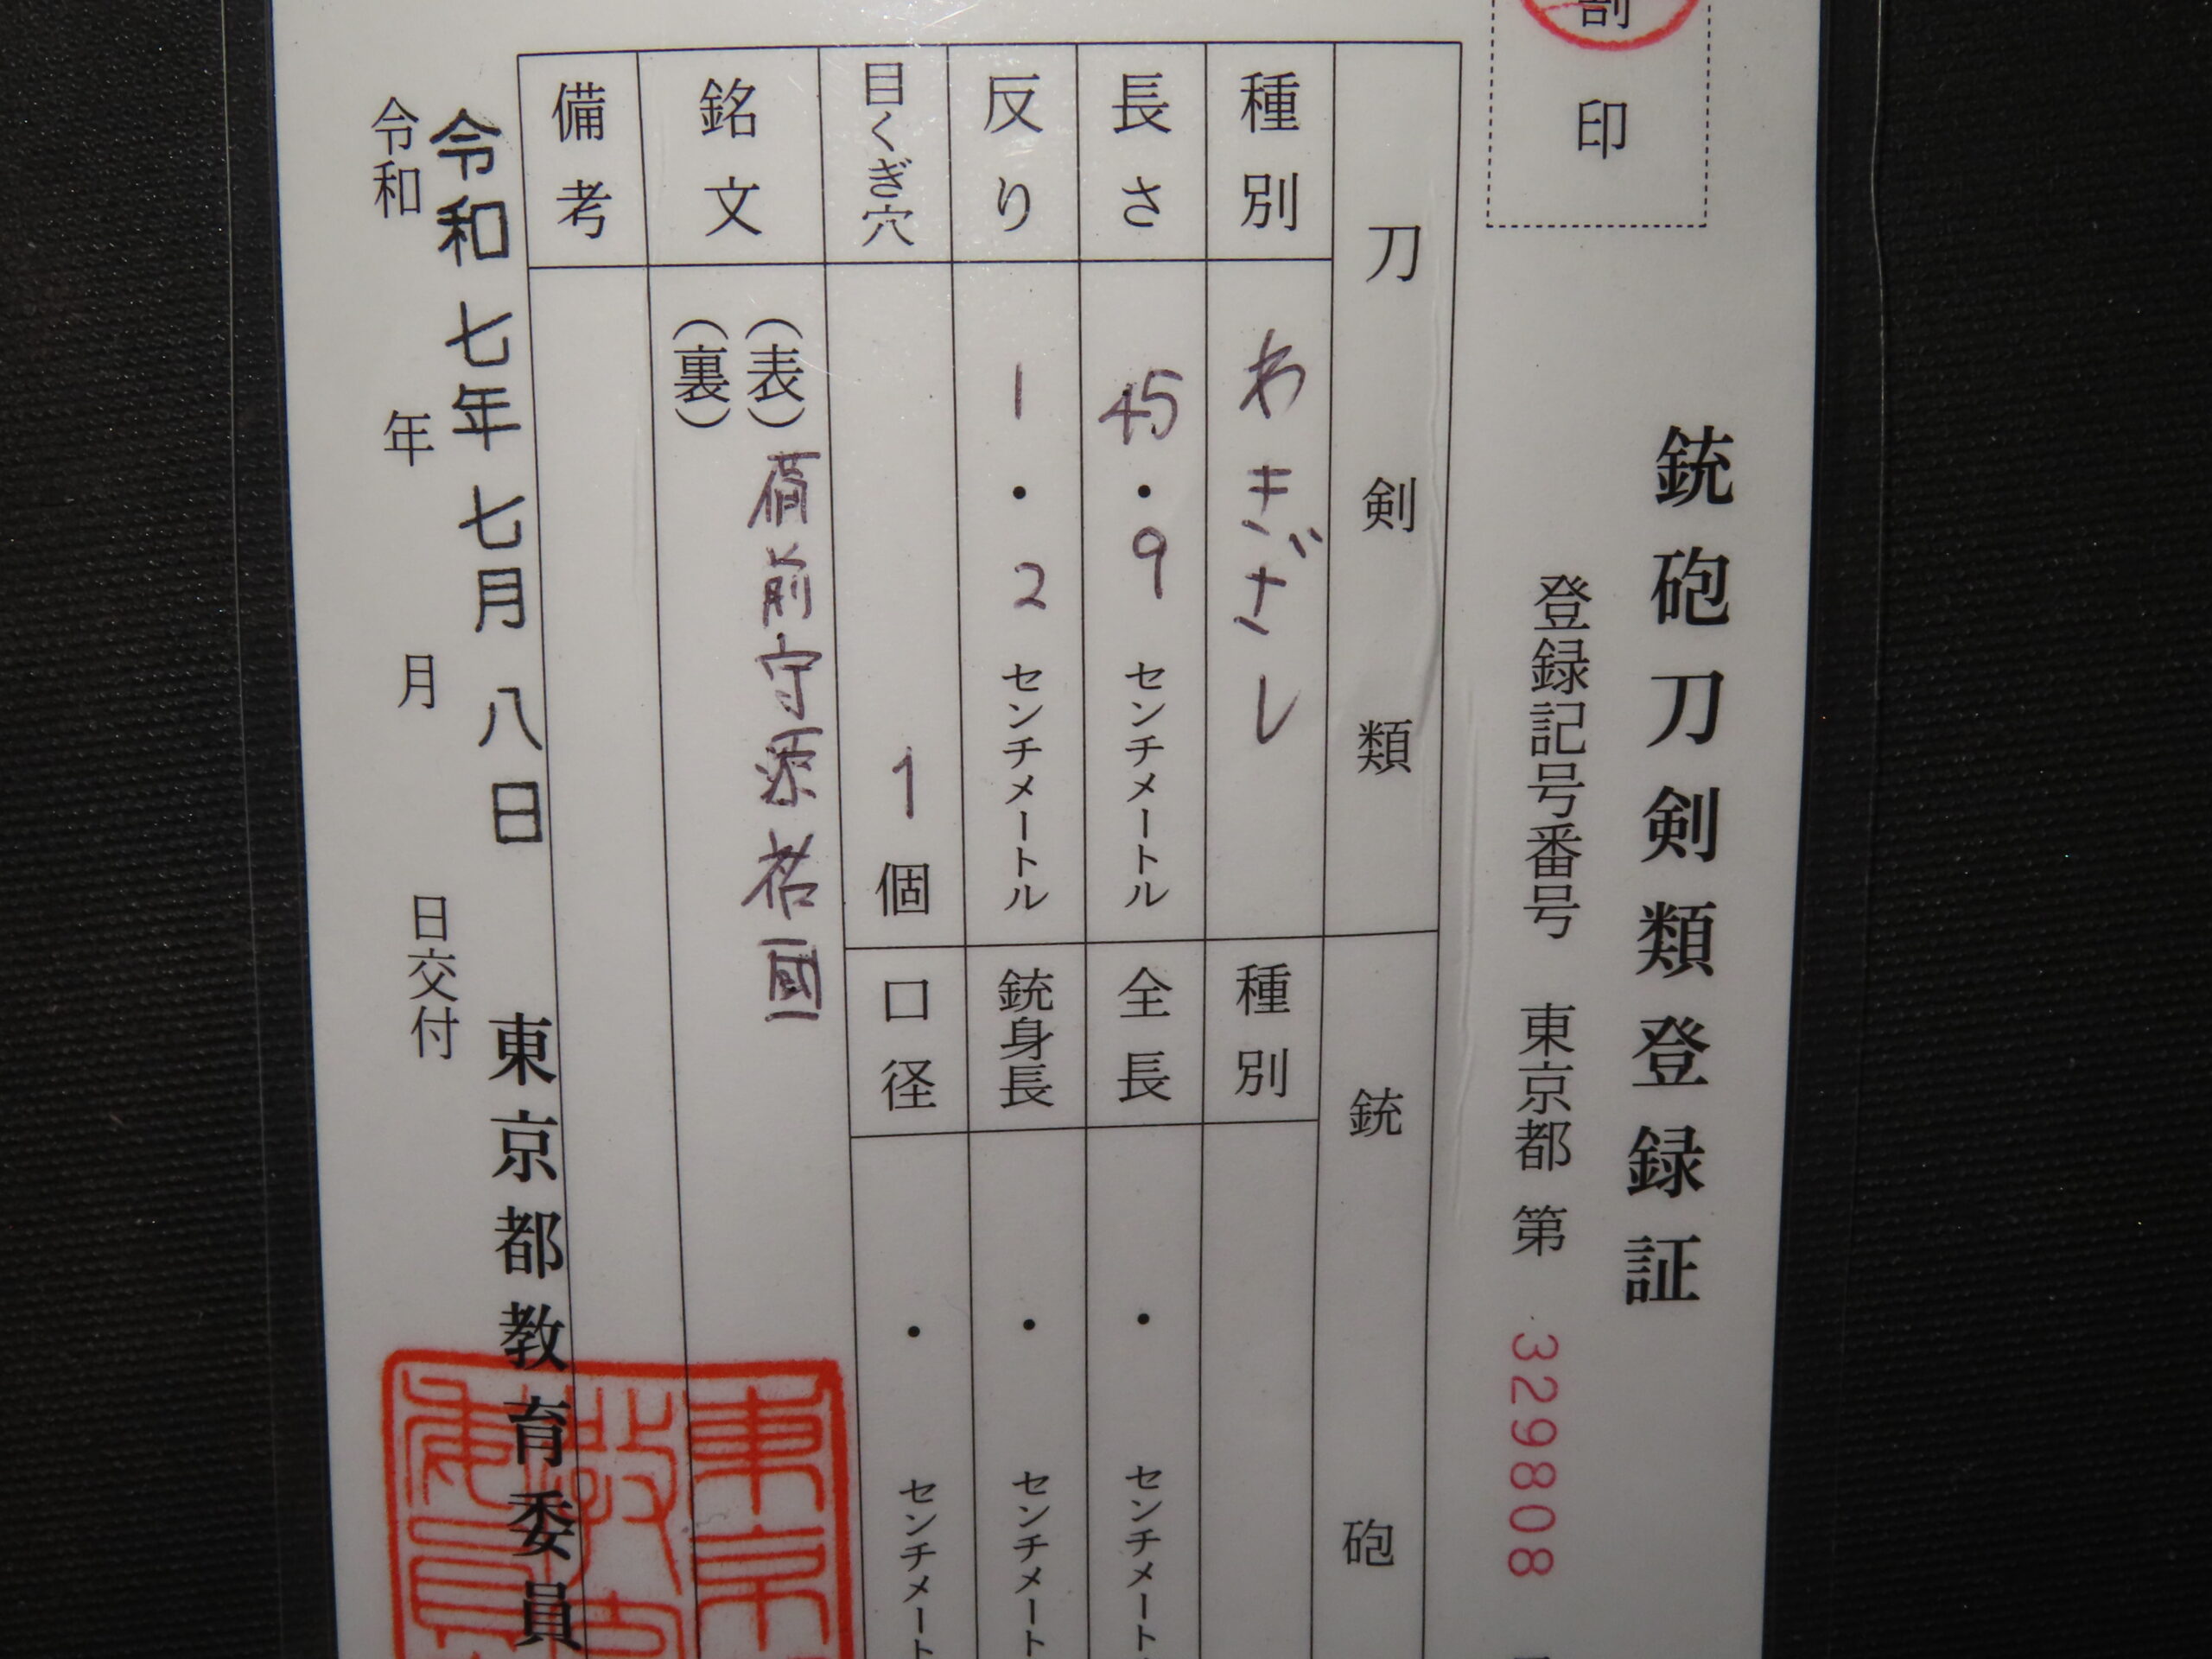 割印
銃砲刀剣類登録証
登録記号番号 東京都 第 329808
刀剣類
種別 わきざし
長さ 45・9 センチメートル
反り 1・2 センチメートル
目くぎ穴 1 個
銘文 (表) 備前守源祐国
(裏)
備考
銃砲
種別
全長 ・ センチメート
銃身長 ・ センチメート
口径 ・ センチメート
令和七年七月八日
東京都教育委員
令和 年 月 日交付